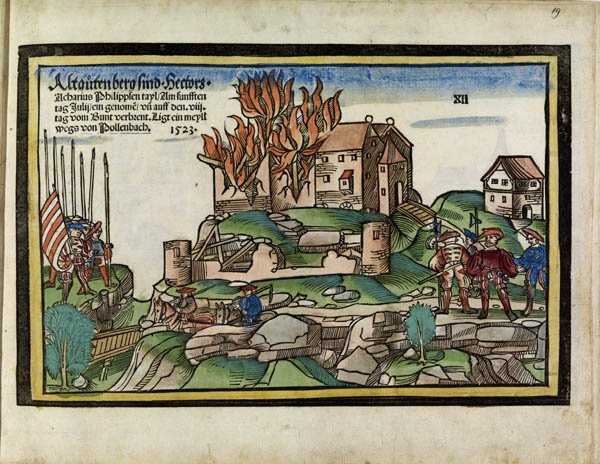 19
Altgůttenberg sind Hectors.
Acharius Philippsen tayl / Am funfften
tag Julij / ein genomē / vñ auff den .viij.
tag vom Bunt verbrent. Ligt ein meyll
wegs von Pollenbach. 1523.
XII